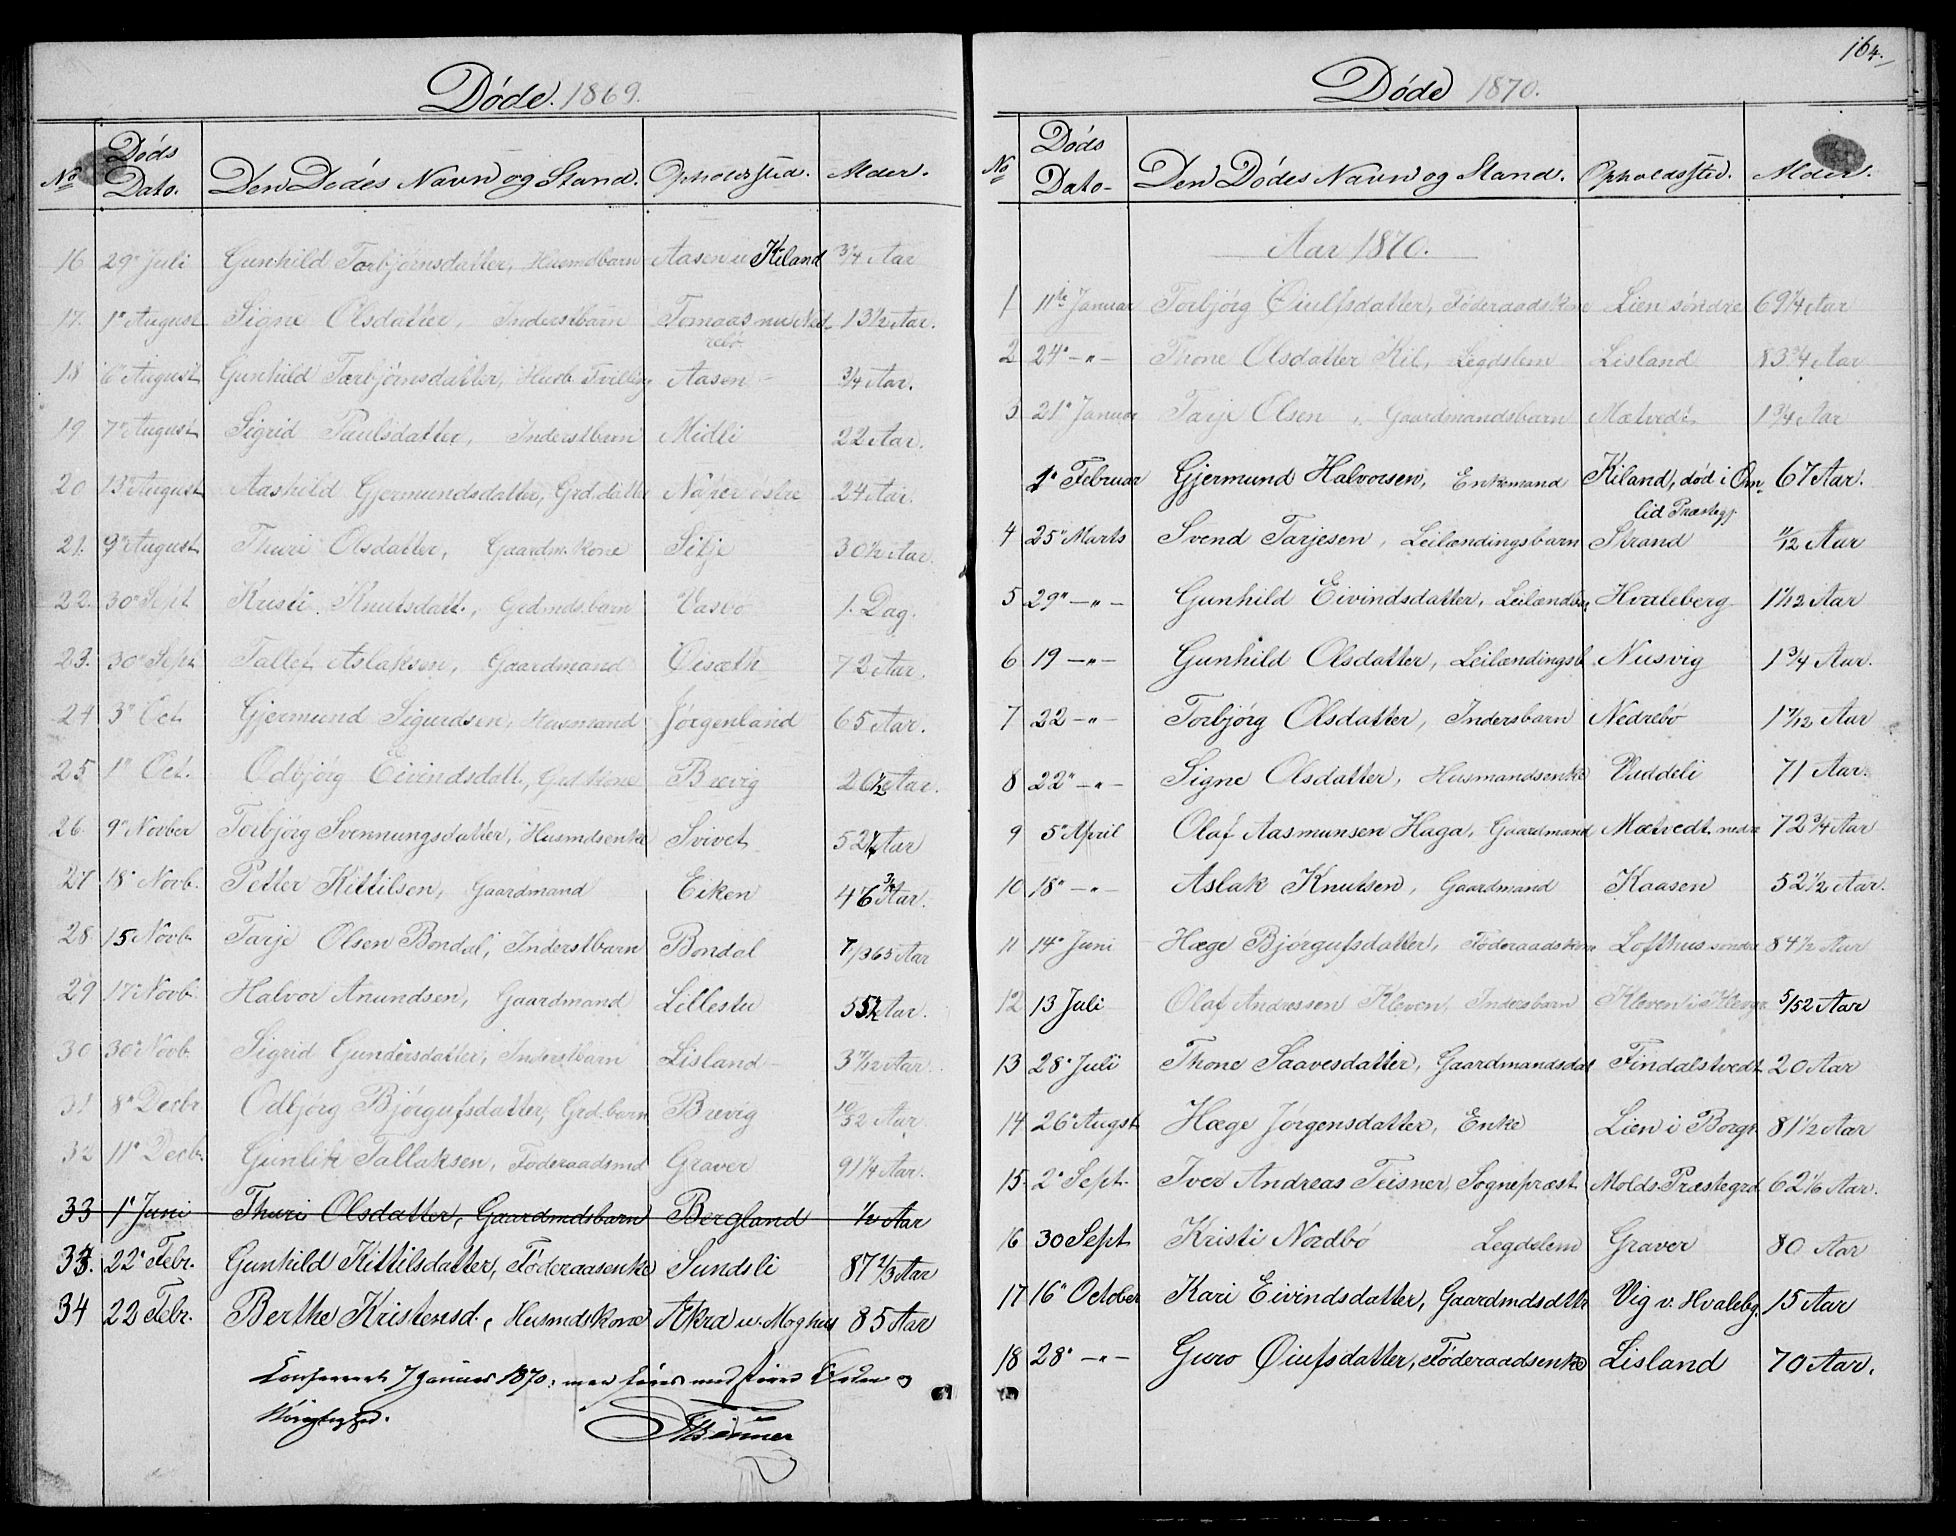 Døde. 1869.
No Døds Dato. Den Dødes Navn og Stand. Opholdssted. Alder.
16 29" Juli Gunhild Torbjørnsdatter, Husmdbarn Aasen u Kiland 3/4 Aar
17. 1" August Signe Olsdatter, Inderstbarn Tomaas nu Ned- 13 1/2 Aar.
rebø
18 6" August Gunhild Torbjørnsdatter, Husb. Tvilling Aasen 3/4 Aar.
19 7" August Sigrid Paulsdatter, Inderstbarn Midli 22 Aar.
20 13" August Aashild Gjermundsdatter, Grd.datter Naper østre 24 Aar.
21. 9" August Thuri Olsdatter, Gaardm.kone Sitje 30 1/2 Aar.
22. 30" Sept Kristi Knutsdatt., Grdmds.barn Vasvo 1. Dag.
23. 30" Sept Tallef Aslaksen, Gaardmand Øisæth 72 Aar.
24 3" Oct. Gjermund Sigurdsen, Husmand Jørgenland 65 Aar.
25 1" Oct. Odbjørg Eivindsdatt., Grd.kone Brevig 26 1/2 Aar.
26. 9" Novber Torbjørg Svennungsdatter, Husmdsenke Svivet 52 Aar
27 18" Novb. Petter Kittilsen, Gaardmand Eiken 46 3/4 Aar.
28. 15 Novb. Tarje Olsen Bondal, Inderstbarn Bondal 7/365 Aar
29 17" Novb. Halvor Anundsen, Gaardmand Lillestu 55 1/2 Aar.
30 30" Novb. Sigrid Gundersdatter, Inderstbarn Lisland 3 7/12 Aar.
31 8" Decbr. Odbjørg Bjørgufsdatter, Grd.barn Brevig 10/52 Aar.
32 11" Decb. Gunlik Tallaksen, Føderaadsmd Graver 91 1/4 Aar.
33 1" Juni Thuri Olsdatter, Gaardmdsbarn Bergland 1/2 Aar
33. 22" Febr. Gunhild Kittilsdatter, Føderaasenke Sundsli 87 2/3 Aar
34 22 Febr. Berthe Kristensd., Husmdskone Akra u. Moghus 85 Aar
Confereret 7 Januar 1870;
164.
Døde 1870.
No Døds Dato- Den Dødes Navn og Stand. Opholdssted. Alder.
Aar 1870.
1 11te Januar Torbjørg Øiulfsdatter, Føderaadskone Lien søndre 69 1/4 Aar
2 24" -"- Thone Olsdatter Kil, Legdslem Lisland 83 3/4 Aar
3 21" Januar Tarje Olsen, Gaardmandsbarn Mætvedt 1 3/4 Aar
1" Februar Gjermund Halvorsen, Enkemand Kiland, død i Om- 67 Aar.
lid Præstegj.
4 25" Marts Svend Tarjesen, Leilændingsbarn Strand 11/12 Aar
5 29" -"- Gunhild Eivindsdatter, Leilændbar Hvaleberg 1 1/12 Aar
6 19 -"- Gunhild Olsdatter, Leilændingsb Nusvig 1 3/4 Aar.
7 22 -"- Torbjørg Olsdatter, Indersbarn Nedrebø 1 7/12 Aar
8 22" -"- Signe Olsdatter, Husmandsenke Vuddeli 71 Aar.
9 5" April Olaf Aasmunsen Haga, Gaardmand Mætvedt nedre 72 3/4 Aar
10 18" -"- Aslak Knutsen, Gaardmand Kaasen 52 1/2 Aar.
11 14" Juni Hæge Bjørgufsdatter, Føderaadskone Lofthus søndre 84 1/2 Aar
12 13 Juli Olaf Andressen Kleven, Indersbarn Kleven i 5/52 Aar
13 28" Juli Thone Saavesdatter, Gaardmandsdat Findalstvedt 20 Aar
14 26" Augst Hæge Jørgensdatter, Enke Lien i Borg. 81 1/2 Aar
15. 2" Sept. Iver Andreas Teisner, Sognepræst Molds Præstegrd 62 1/6 Aar.
16 30 Sept Kristi Nordbø Legdslem Graver 80 Aar
17 16" October Kari Eivindsdatter, Gaardmdsdttr Vig v. Hvalebg. 15 Aar
18 28" -"- Guro Øiufsdatter, Føderaadsenke Lisland 70 Aar.